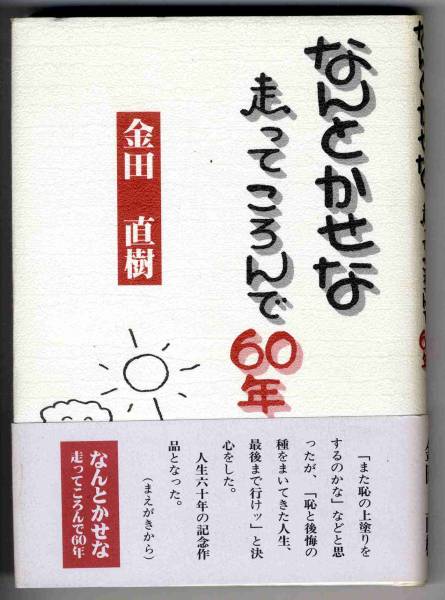 なんとかせな
走ってころんで
60年
金田 直樹
「また恥の上塗りを
するのかな」などと思
ったが、「恥と後悔の
種をまいてきた人生、
最後まで行けッ」と決
心をした。
人生六十年の記念作
品となった。
(まえがきから)
なんとかせな
走ってころんで60年